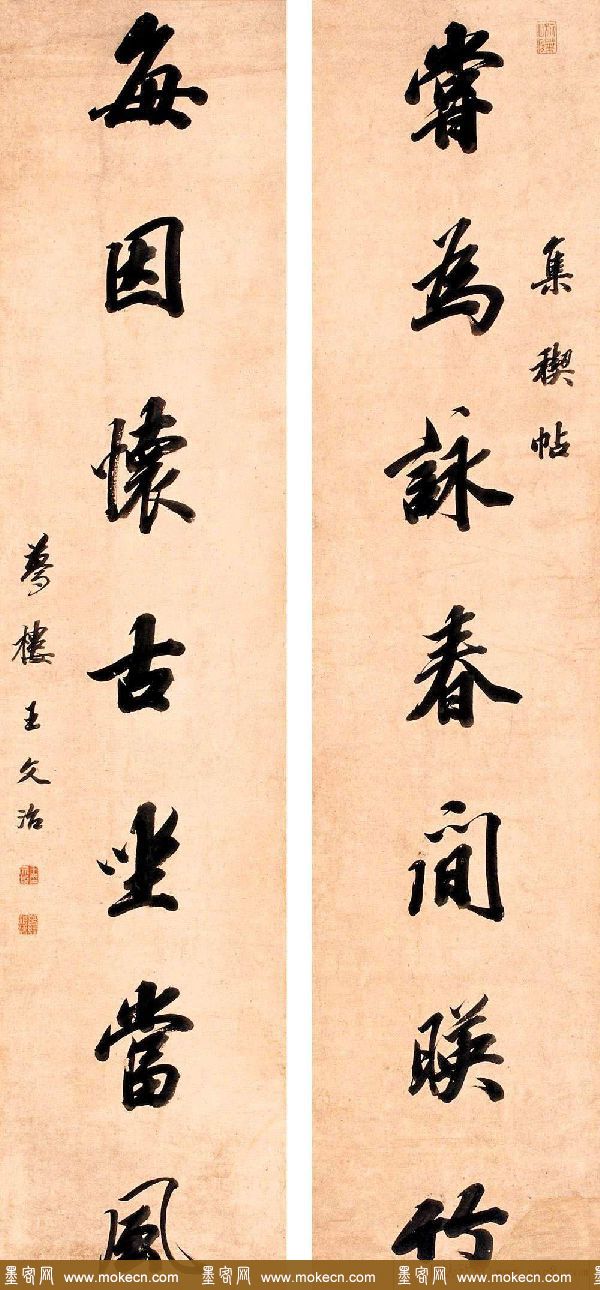 集稧帖
嘗為詠春閒暎竹
每因懷古坐當風
夢樓王文治
墨客网 www.mokecn.com 墨客网 www.mokecn.com 墨客网 www.mokecn.com 墨